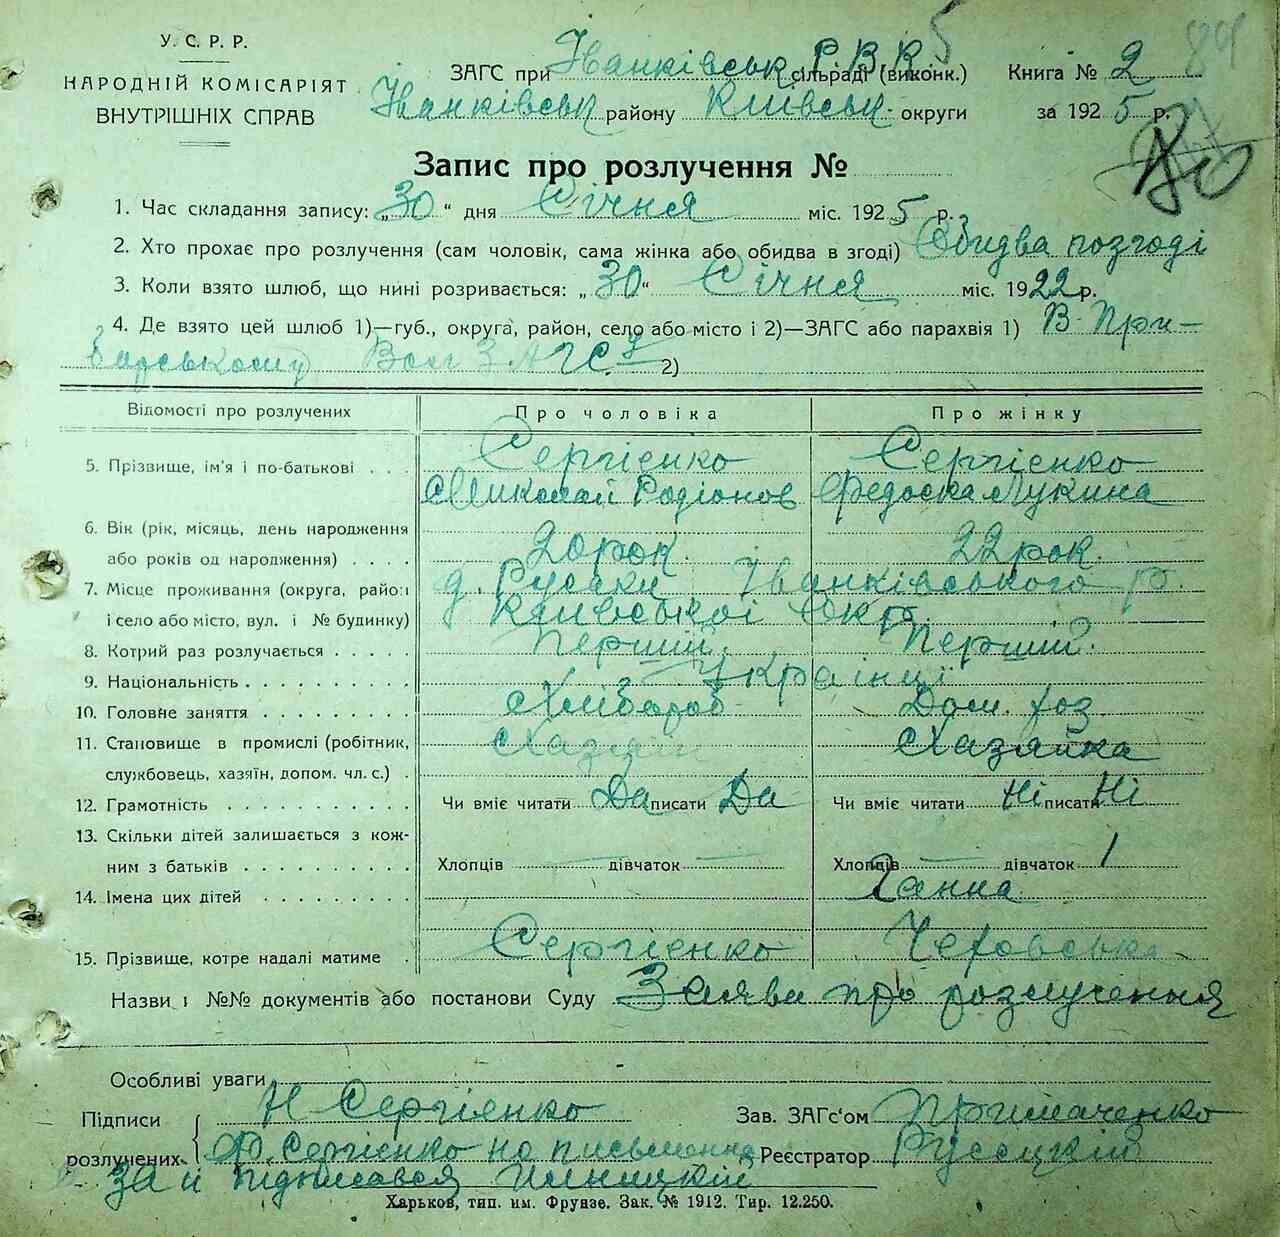 У. С. Р. Р.
НАРОДНІЙ КОМІСАРІЯТ
ВНУТРІШНІХ СПРАВ
5
ЗАГС при Іванківськ Р.В.К. сільраді (виконк.)
Іванківськ району Київськ. округи
Книга № 2
за 1925 р.
Запис про розлучення №
1. Час складання запису: „30“ дня Січня міс. 1925 р.
2. Хто прохає про розлучення (сам чоловік, сама жінка або обидва в згоді) Обидва позгоді
3. Коли взято шлюб, що нині розривається: „30“ Січня міс. 1922 р.
4. Де взято цей шлюб 1)—губ., округа, район, село або місто і 2)—ЗАГС або парахвія 1) В При-
борському Вол ЗАГС.у 2)
Відомості про розлучених Про чоловіка Про жінку
5. Прізвище, ім'я і по-батькові . . . Сергієнко Сергієнко
Миколай Родіонов Федоска Лукина
6. Вік (рік, місяць, день народження
або років од народження) . . . . 20 рок. 22 рок.
7. Місце проживання (округа, район
і село або місто, вул. і № будинку) д. Русаки Іванківського р.
Київської окр.
8. Котрий раз розлучається . . . . . Перший. Перший.
9. Національність . . . . . . . . . . Українці
10. Головне заняття . . . . . . . . . Хлібороб Дом. хоз.
11. Становище в промислі (робітник,
службовець, хазяїн, допом. чл. с.) . Хазяїн Хазяйка
12. Грамотність . . . . . . . . . . . Чи вміє читати Да писати Да Чи вміє читати Ні писати Ні
13. Скільки дітей залишається з кож-
ним з батьків . . . . . . . . . . Хлопців — дівчаток — Хлопців — дівчаток 1
14. Імена цих дітей . . . . . . . . . Ганна
15. Прізвище, котре надалі матиме . Сергієнко
Назви і №№ документів або постанови Суду Заява про розлучення
Особливі уваги
Підписи Н Сергієнко Зав. ЗАГс'ом Примаченко
розлучених Ф. Сергієнко не письменна Реєстратор Русецкий
За й підписався
Харьков, тип. им. Фрунзе. Зак. № 1912. Тир. 12.250.